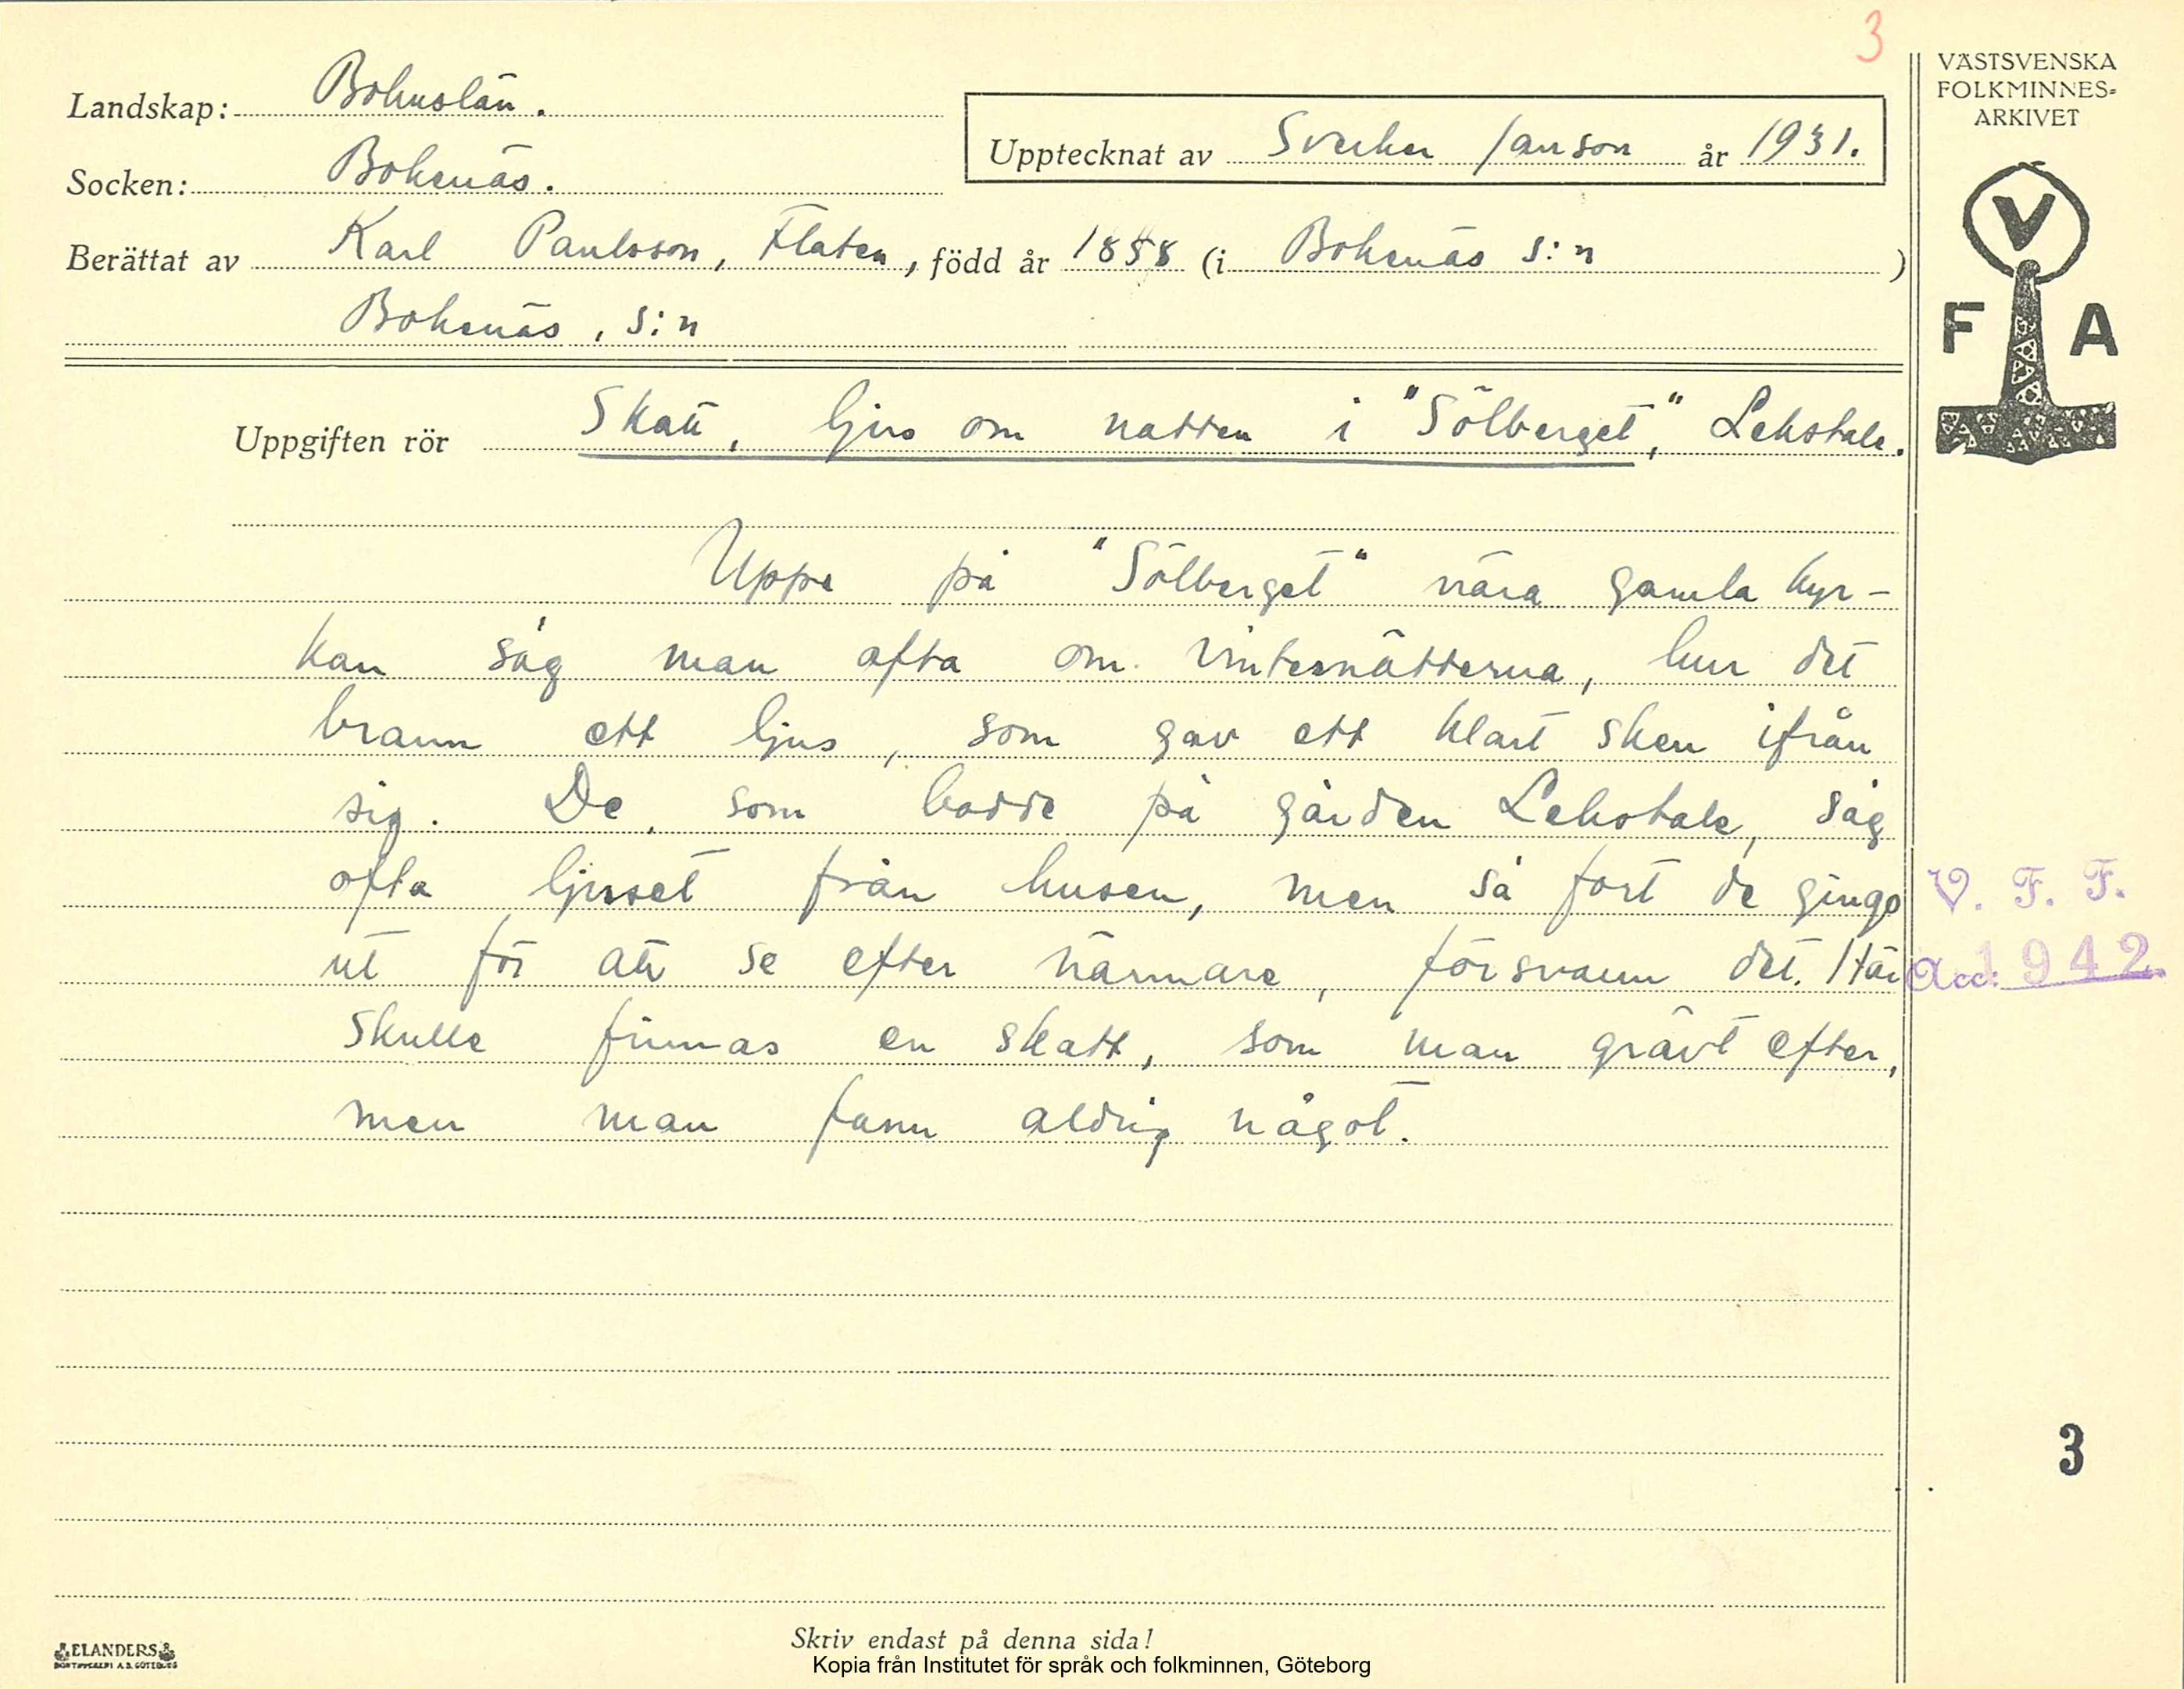 3
VÄSTSVENSKA
FOLKMINNES-
ARKIVET
V
F A
Landskap: Bohuslän.
Upptecknat av Sverker Janson år 1931.
Socken: Bokenäs.
Berättat av Karl Paulsson, Flaten, född år 1858 (i Bokenäs s:n )
Bokenäs, s:n
Uppgiften rör Skatt, ljus om natten i "Sölberget," Lekstale.
Uppe på "Sölberget" nära gamla kyr-
kan såg man ofta om vinternätterna, hur det
brann ett ljus, som gav ett klart sken ifrån
sig. De, som bodde på gården Lekstale, såg
ofta ljuset från husen, men så fort de gingo
ut för att se efter närmare, försvann det. Här
skulle finnas en skatt, som man grävt efter,
men man fann aldrig något.
V. F. F.
Acc: 1942.
3
Skriv endast på denna sida!
ELANDERS
BOKTRYCKERI A.B. GÖTEBORG
Kopia från Institutet för språk och folkminnen, Göteborg